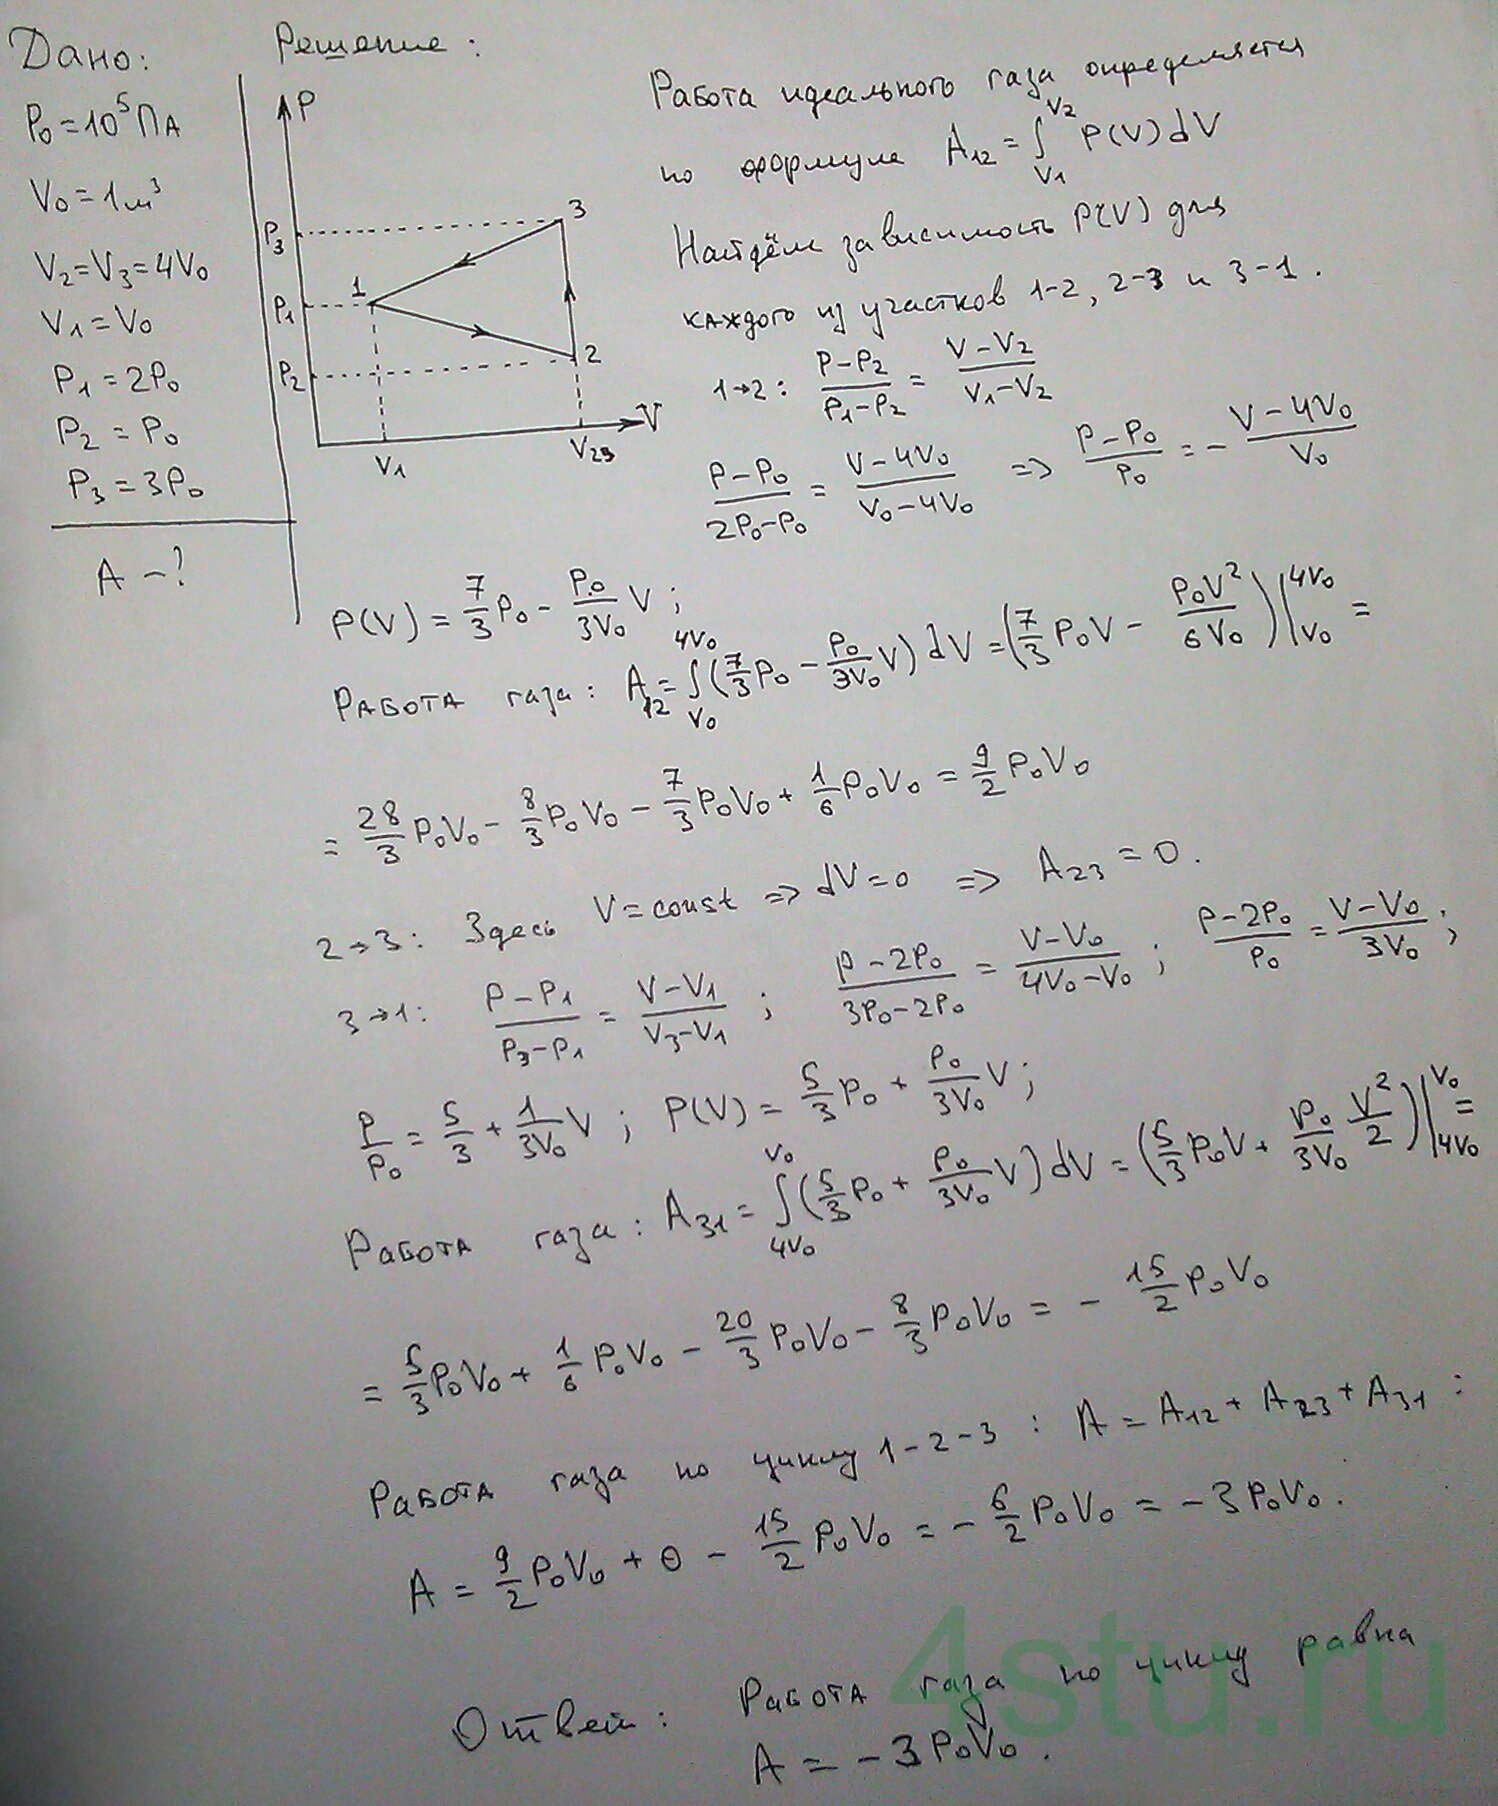 Дано:
P₀ = 10⁵ ПА
V₀ = 1 м³
V₂ = V₃ = 4V₀
V₁ = V₀
P₁ = 2P₀
P₂ = P₀
P₃ = 3P₀
A - ?
Решение:
P
P₃
3
1
P₁
P₂
2
V
V₁
V₂₃
Работа идеального газа определяется
по формуле A₁₂ = ∫_{V₁}^{V₂} P(V) dV
Найдём зависимость P(V) для
каждого из участков 1-2, 2-3 и 3-1.
1→2: (P-P₂)/(P₁-P₂) = (V-V₂)/(V₁-V₂)
(P-P₀)/(2P₀-P₀) = (V-4V₀)/(V₀-4V₀) => (P-P₀)/P₀ = - (V-4V₀)/V₀
P(V) = 7/3 P₀ - P₀/(3V₀) V;
РАБОТА газа: A₁₂ = ∫_{V₀}^{4V₀} (7/3 P₀ - P₀/(3V₀) V) dV = (7/3 P₀V - P₀V²/(6V₀)) |_{V₀}^{4V₀} =
= 28/3 P₀V₀ - 8/3 P₀V₀ - 7/3 P₀V₀ + 1/6 P₀V₀ = 9/2 P₀V₀
2→3: Здесь V = const => dV = 0 => A₂₃ = 0.
3→1: (P-P₁)/(P₃-P₁) = (V-V₁)/(V₃-V₁); (P-2P₀)/(3P₀-2P₀) = (V-V₀)/(4V₀-V₀); (P-2P₀)/P₀ = (V-V₀)/(3V₀);
P/P₀ = 5/3 + 1/(3V₀) V; P(V) = 5/3 P₀ + P₀/(3V₀) V;
РАБОТА газа: A₃₁ = ∫_{4V₀}^{V₀} (5/3 P₀ + P₀/(3V₀) V) dV = (5/3 P₀V + P₀/(3V₀) V²/2) |_{4V₀}^{V₀} =
= 5/3 P₀V₀ + 1/6 P₀V₀ - 20/3 P₀V₀ - 8/3 P₀V₀ = - 15/2 P₀V₀
РАБОТА газа по циклу 1-2-3: A = A₁₂ + A₂₃ + A₃₁:
A = 9/2 P₀V₀ + 0 - 15/2 P₀V₀ = - 6/2 P₀V₀ = - 3P₀V₀.
Ответ: РАБОТА газа по циклу равна
A = - 3P₀V₀.
4stu.ru